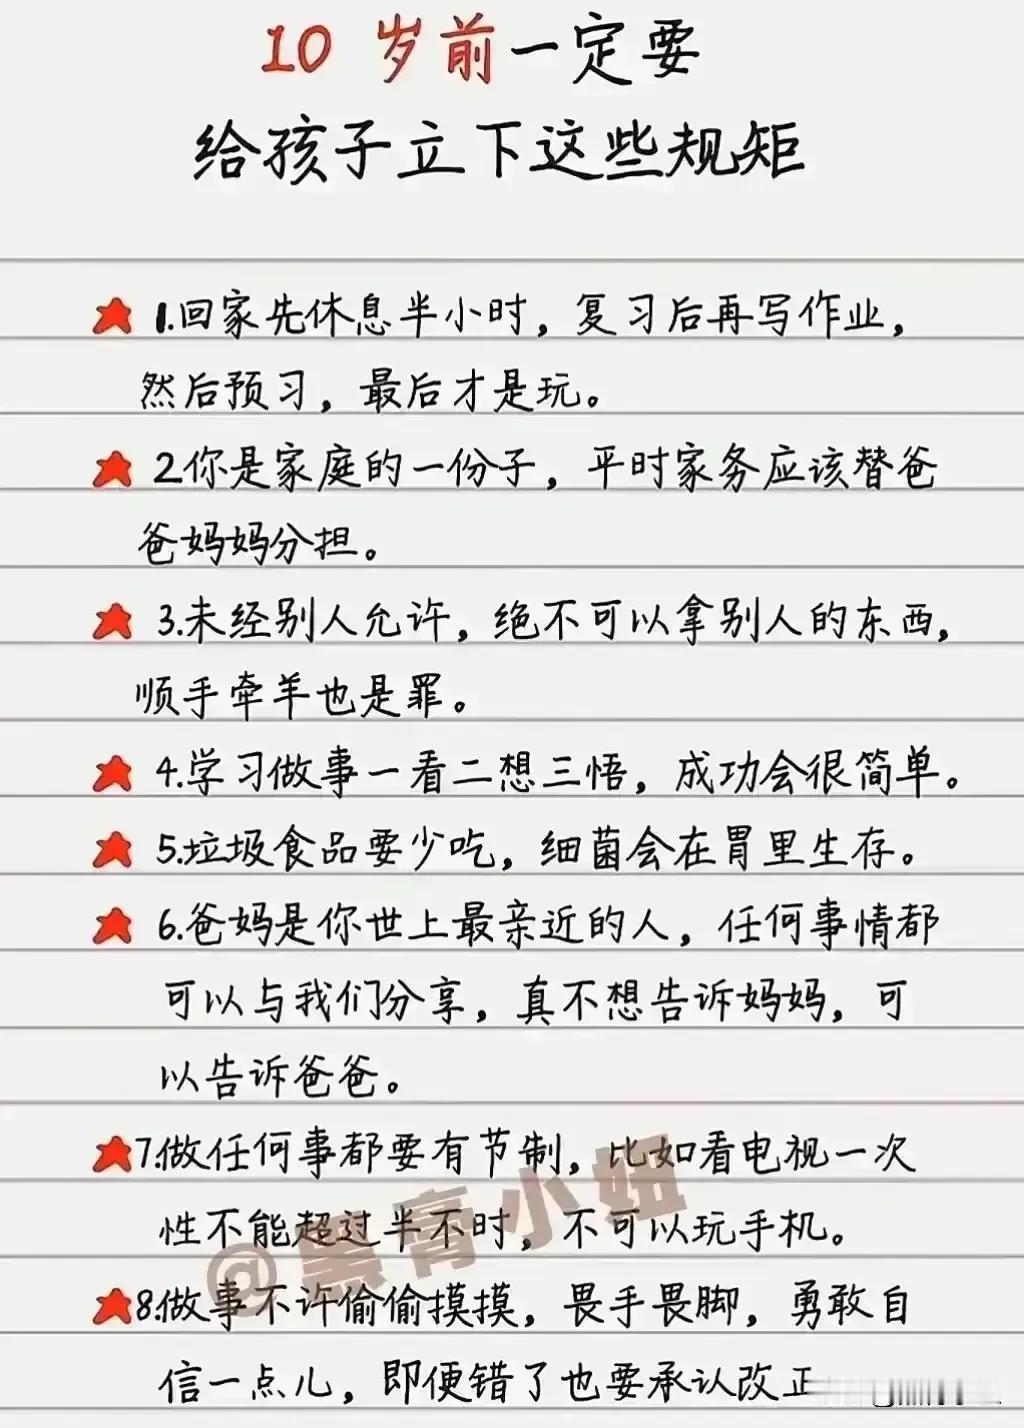 10 岁前一定要
给孩子立下这些规矩
1.回家先休息半小时，复习后再写作业，
然后预习，最后才是玩。
2.你是家庭的一份子，平时家务应该替爸
爸妈妈分担。
3.未经别人允许，绝不可以拿别人的东西，
顺手牵羊也是罪。
4.学习做事一看二想三悟，成功会很简单。
5.垃圾食品要少吃，细菌会在胃里生存。
6.爸妈是你世上最亲近的人，任何事情都
可以与我们分享，真不想告诉妈妈，可
以告诉爸爸。
7.做任何事都要有节制，比如看电视一次
性不能超过半不时，不可以玩手机。
8.做事不许偷偷摸摸，畏手畏脚，勇敢自
信一点儿，即便错了也要承认改正
@黑膏小妞